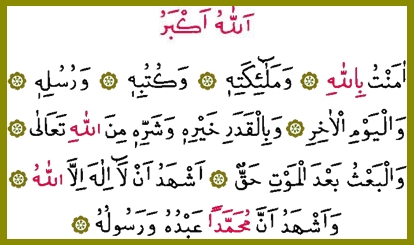 اَللّٰهُ اَكْبَرُ
اٰمَنْتُ بِاللّٰهِ ۞ وَمَلٰٓئِكَتِهٖ ۞ وَكُتُبِهٖ ۞ وَرُسُلِهٖ ۞
وَالْيَوْمِ الْاٰخِرِ ۞ وَبِالْقَدَرِ خَيْرِهٖ وَشَرِّهٖ مِنَ اللّٰهِ تَعَالٰى ۞
وَالْبَعْثُ بَعْدَ الْمَوْتِ حَقٌّ ۞ اَشْهَدُ اَنْ لَٓا اِلٰهَ اِلَّا اللّٰهُ ۞
وَاَشْهَدُ اَنَّ مُحَمَّدًا عَبْدُهُ وَرَسُولُهُ ۞